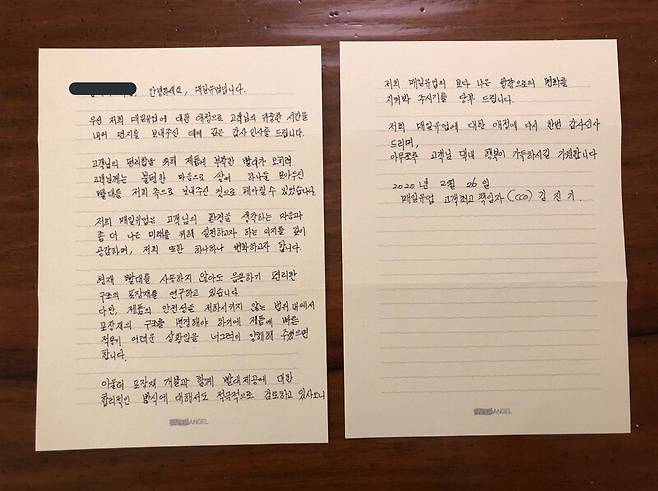 안녕하세요, 매일유업입니다.
우선 저희 매일유업에 대한 애정으로 고객님의 귀중한 시간을
내어 편지를 보내주신 데에 깊은 감사 인사를 드립니다.
고객님의 편리함을 위해 제품에 부착한 빨대가 오히려
고객님께는 불편한 마음으로 쌓여 하나둘 모아두신
빨대를 저희 쪽으로 보내주신 것으로 헤아릴 수 있었습니다.
저희 매일유업은 고객님의 환경을 생각하는 마음과
좀 더 나은 미래를 위해 실천하고자 하는 의지를 깊이
공감하며, 저희 또한 하나하나 변화하고자 합니다.
현재 빨대를 사용하지 않아도 음용하기 편리한
구조의 포장재를 연구하고 있습니다.
다만, 제품의 안전성은 저하시키지 않는 범위 내에서
포장재의 구조를 변경해야 하기에 제품에 빠른
적용이 어려운 상황임을 너그러이 양해해 주셨으면
합니다.
아울러 포장재 개발과 함께 빨대 제공에 대한
합리적인 방식에 대해서도 적극적으로 검토하고 있사오니
ANGEL
저희 매일유업의 보다 나은 방향으로의 변화를
지켜봐 주시기를 당부 드립니다.
저희 매일유업에 대한 애정에 다시 한번 감사인사
드리며,
아무쪼록 고객님 댁내 행복이 가득하시길 기원합니다
2020년 2월 26일
매일유업 고객최고책임자(CCO) 김진기.
ANGEL